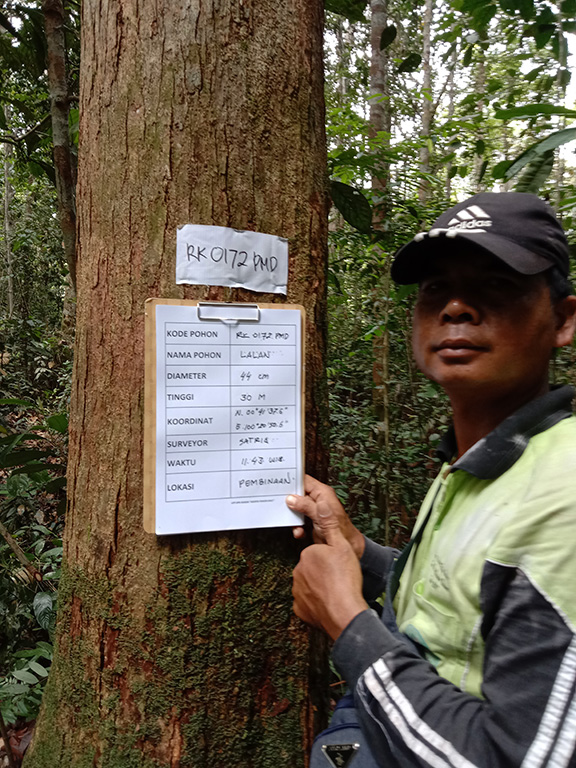 RK 0172 PMD
KODE POHON RK 0172 PMD
NAMA POHON LALAN
DIAMETER 44 cm
TINGGI 30 M
KOORDINAT N. 00°41'37.6"
E. 100°20'50.6"
SURVEYOR SATRIA
WAKTU 11.43 WIB
LOKASI PEMBINAAN
adidas